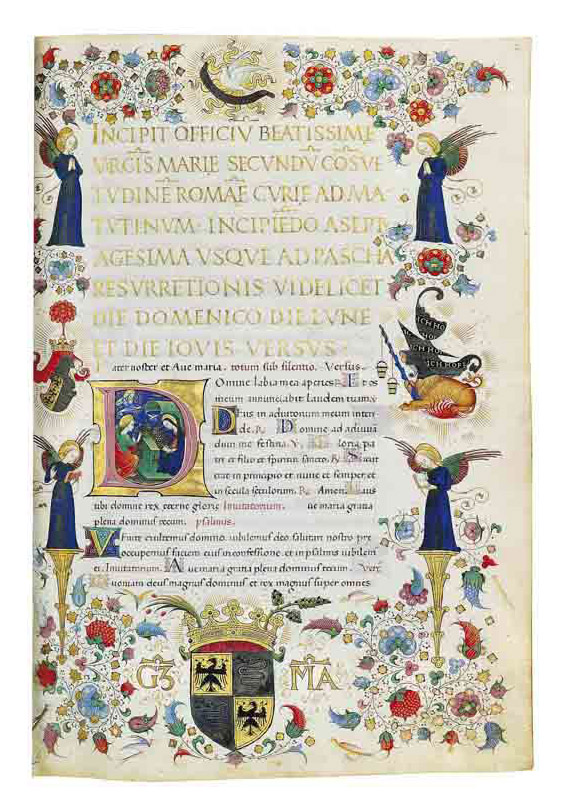 INCIPIT OFFICIV BEATISSIME
VIRGIS MARIE SECVNDV COSVE
TVDINE ROMAE CVRIE AD MA
TVTINVM · INCIPIEDO A SEPT
AGESIMA VSQVE AD PASCHA
RESVRRETIONIS VIDELICET
DIE DOMENICO DIE LVNE
ET DIE IOVIS · VERSVS ·
ater noster et Aue maria. totum sub silentio. Versus.
ICH HO
ICH HO
ICH HO
ICH HOF
D
Omine labia mea aperies. Et os
meum annunciabit laudem tuam. V
Eus in adiutorium meum inten
de. R. Domine ad adiuua
dum me festina. V. Gloria pa
tri et filio et spiritui sancto. R. Sicut
erat in principio et nunc et semper et
in secula seculorum. R. Amen. Laus
tibi domine rex eterne glorie Inuitatorium. ue maria gratia
plena dominus tecum. psalmus.
Venite exultemus domino iubilemus deo salutari nostro pre
occupemus faciem eius in confessione. et in psalmis iubilem
ei. Inuitatorium. Aue maria gratia plena dominus tecum. Vers
uoniam deus magnus dominus et rex magnus super omnes
GZ MA